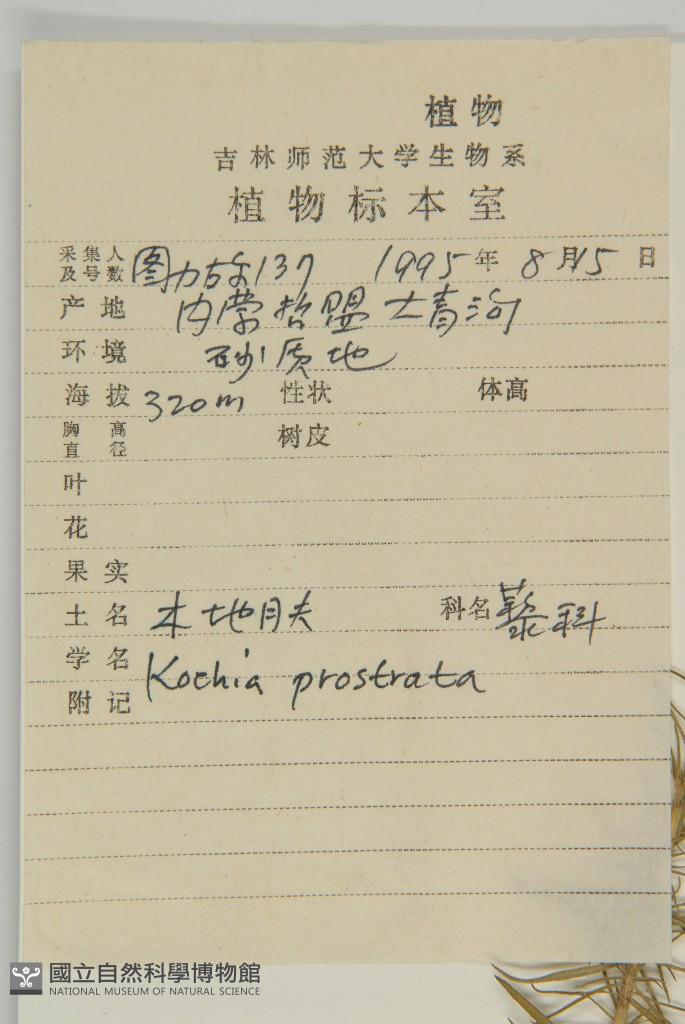 植物
吉林师范大学生物系
植物标本室
采集人及号数 图力古尔137 1995年8月15日
产地 内蒙哲盟大青沟
环境 砂质地
海拔 320m 性状 体高
胸高直径 树皮
叶
花
果实
土名 木地肤 科名 藜科
学名 Kochia prostrata
附记
國立自然科學博物館
NATIONAL MUSEUM OF NATURAL SCIENCE